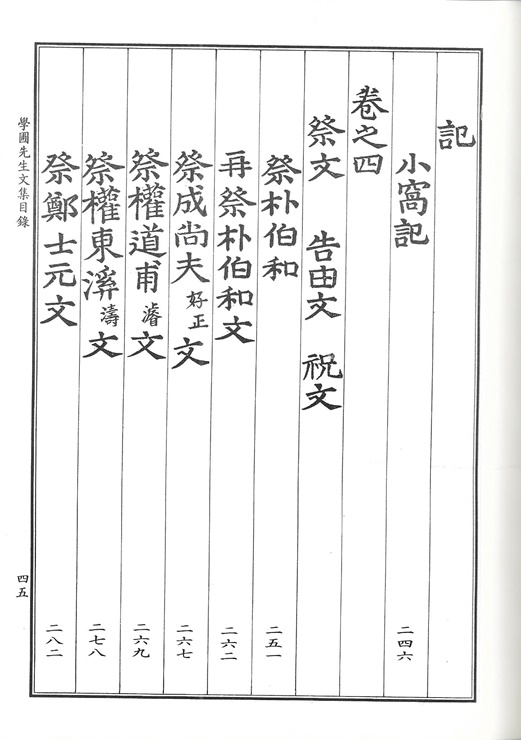 記
小窩記 二四六
卷之四
祭文 告由文 祝文
祭朴伯和 二五一
再祭朴伯和文 二六二
祭成尚夫好正文 二六七
祭權道甫濬文 二六九
祭權東溪濤文 二七八
祭鄭士元文 二八二
學圃先生文集目錄
四五